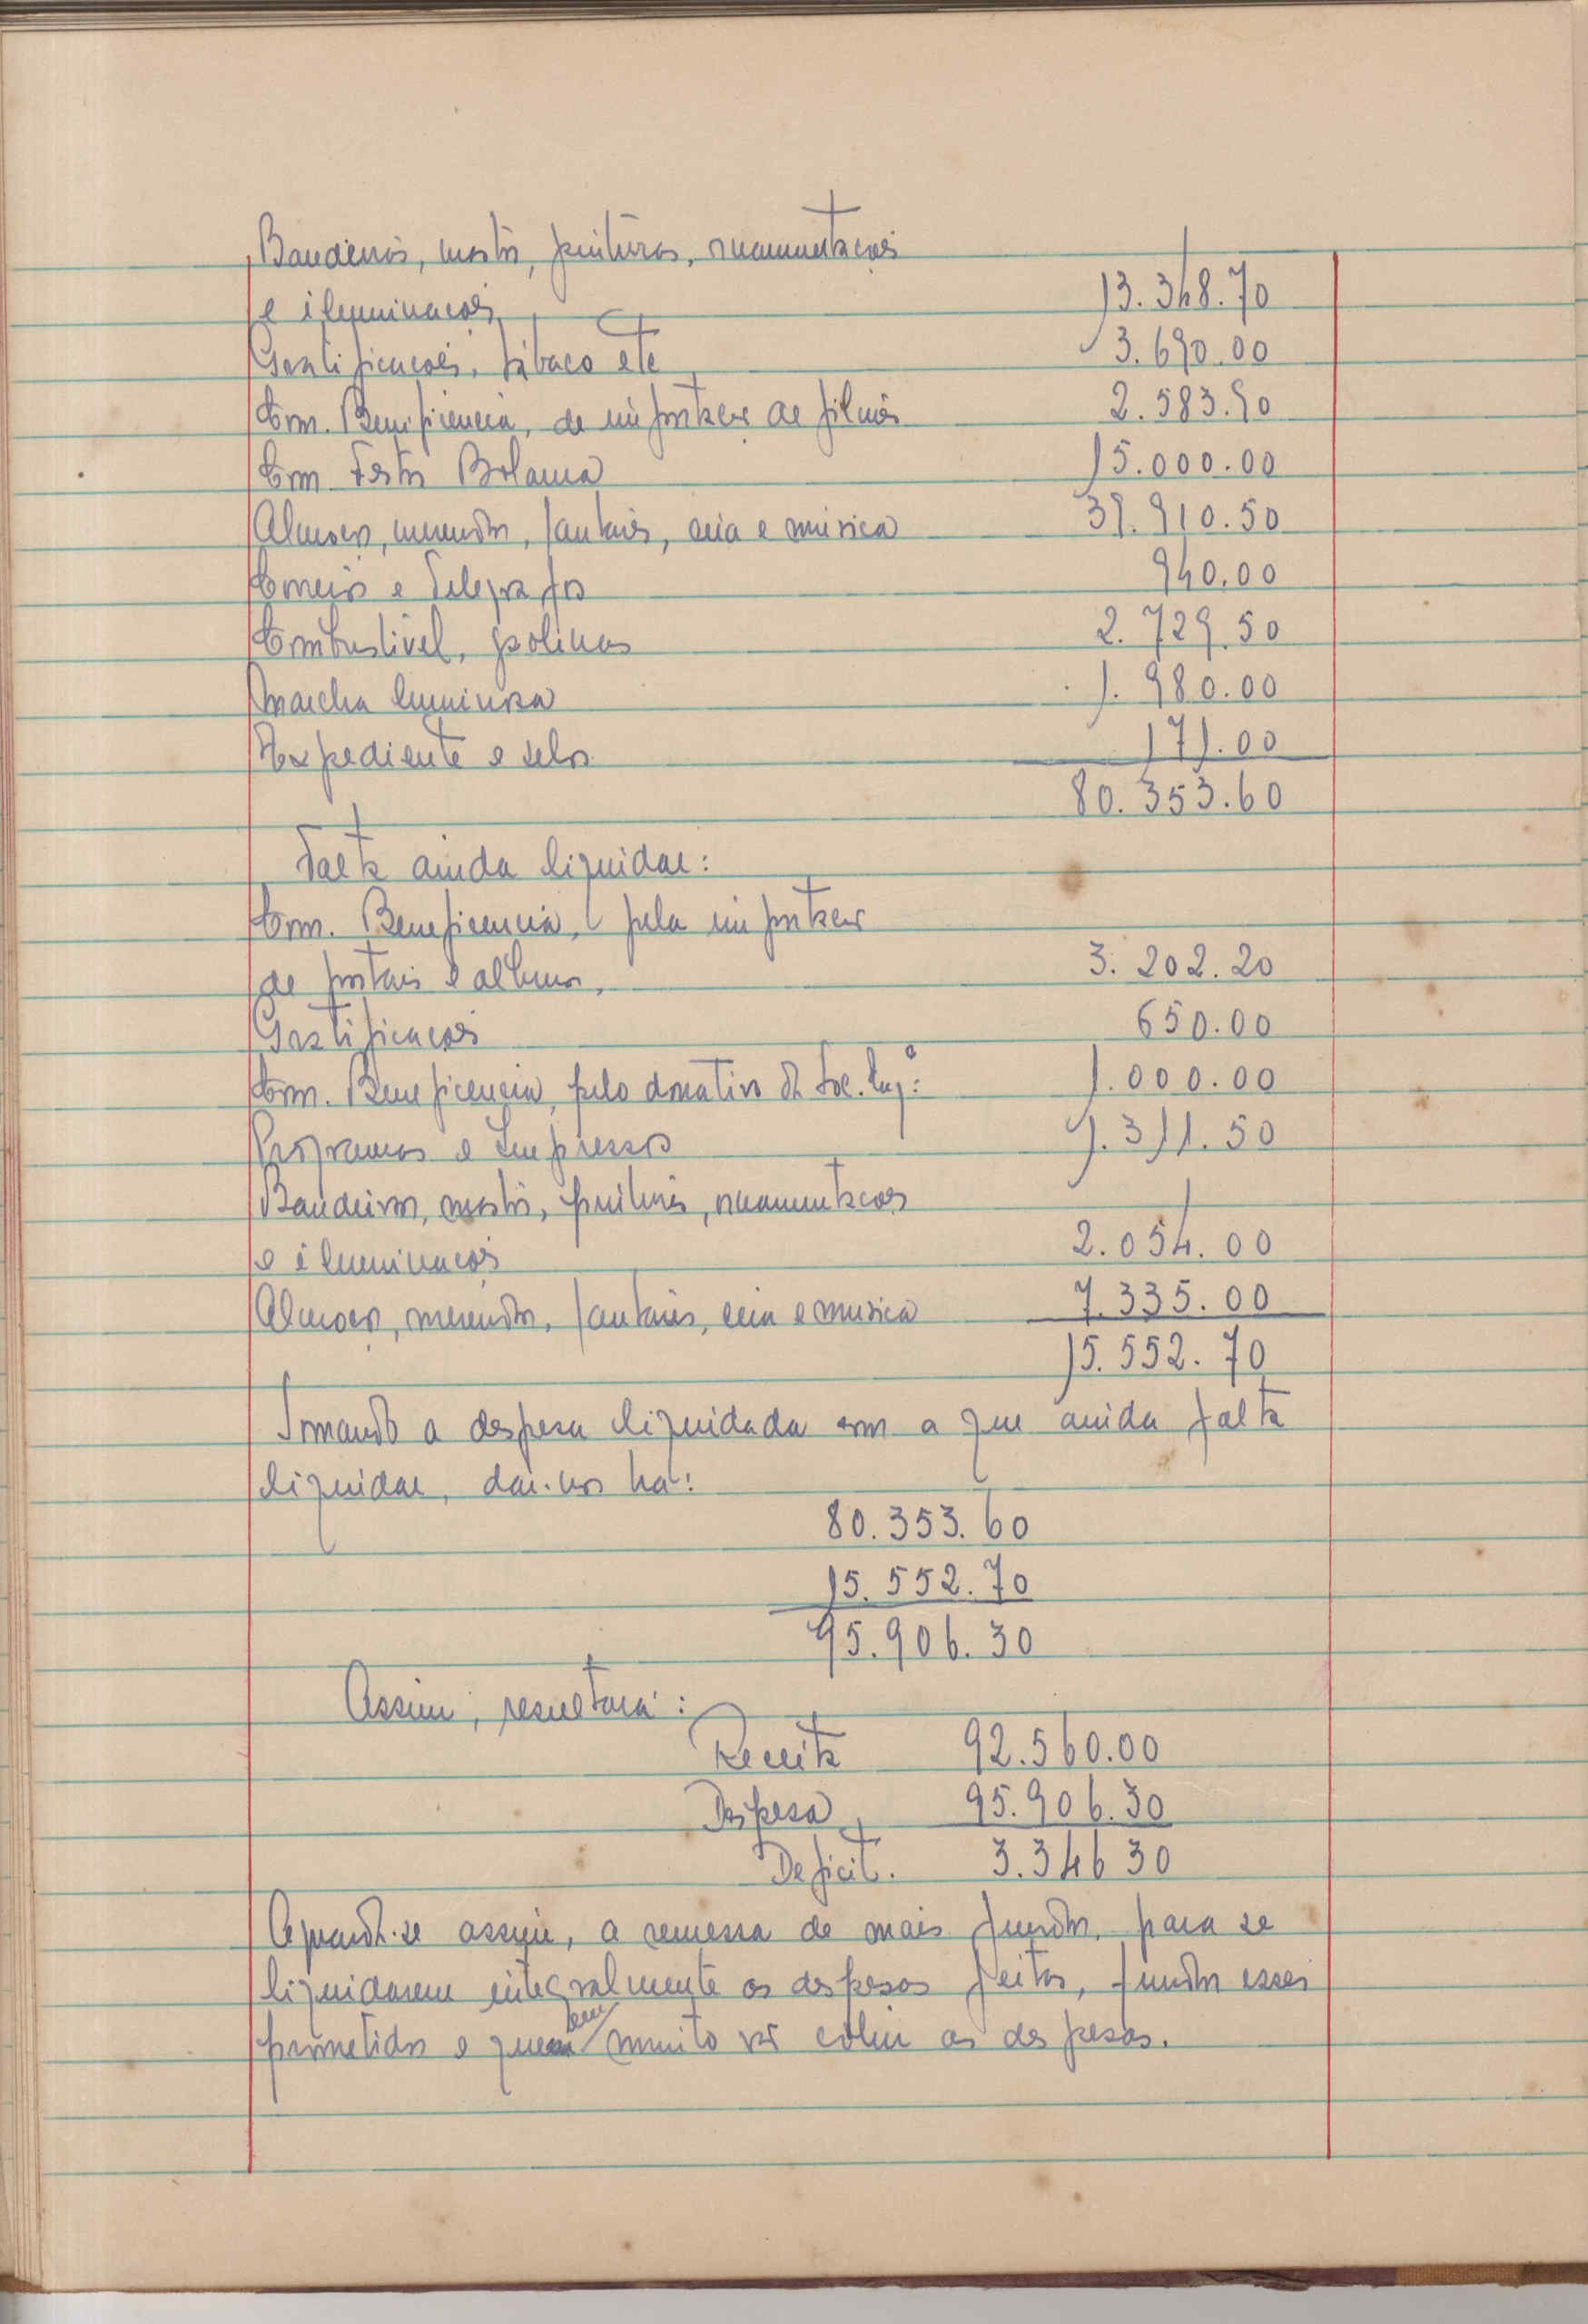 Bandeiras, mastros, pinturas, ornamentações
e iluminações 13.348.70
Gratificações, tabaco etc 3.690.00
Com. Beneficencia, de importação de filmes 2.583.90
Com. Festas Bolama 15.000.00
Almoços, merendas, jantares, ceia e música 39.910.50
Correios e Telegrafos 940.00
Combustivel, gasolinas 2.729.50
Marcha luminosa 1.980.00
Expediente e selos 171.00
80.353.60
Falta ainda liquidar:
Com. Beneficencia, pela importação
de postais e albuns, 3.202.20
Gratificações 650.00
Com. Beneficencia, pelo donativo da Soc. 1.000.00
Programas e Impressos 1.311.50
Bandeiras, mastros, pinturas, ornamentações
e iluminações 2.054.00
Almoços, merendas, jantares, ceia e musica 7.335.00
15.552.70
Somando a despesa liquidada com a que ainda falta
liquidar, dar-nos há:
80.353.60
15.552.70
95.906.30
Assim, resultará:
Receita 92.560.00
Despesa 95.906.30
Deficit. 3.346 30
Aguarda-se assim, a remessa de mais fundos, para se
liquidarem integralmente as despesas feitas, fundos esses
prometidos e que em muito vai cobrir as despesas.